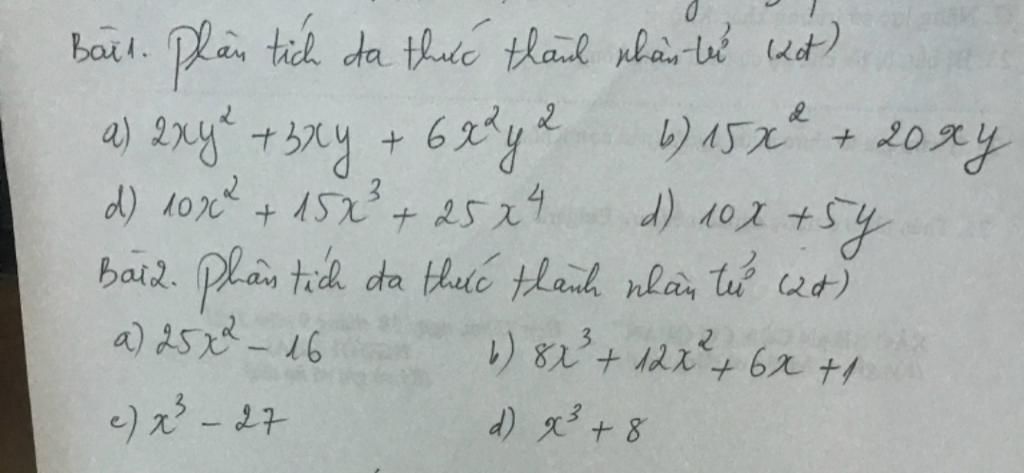 Bài 1. Phân tích đa thức thành nhân tử (2đ)
a) 2xy² + 3xy + 6x²y² b) 15x² + 20xy
d) 10x² + 15x³ + 25x⁴ d) 10x + 5y
Bài 2. Phân tích đa thức thành nhân tử (2đ)
a) 25x² - 16 b) 8x³ + 12x² + 6x + 1
c) x³ - 27 d) x³ + 8